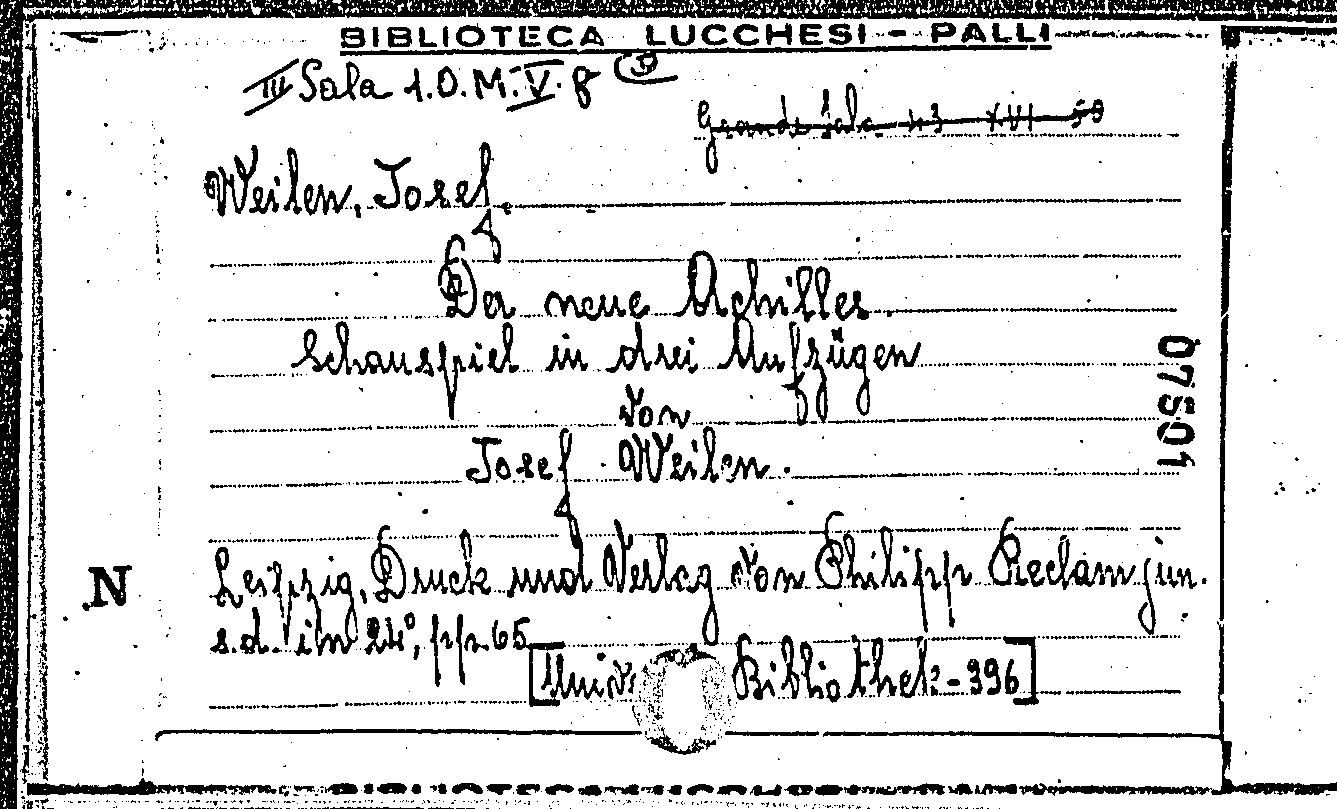 BIBLIOTECA LUCCHESI-PALLI
III Sala 1.O.M.V.8 (9)
Grande Sala 43 XVI 50
Weilen, Josef.
Der neue Achilles.
Schauspiel in drei Aufzügen
von
Josef Weilen.
07501
N
Leipzig, Druck und Verlag von Philipp Reclam jun.
s.d. in 24°, pp. 65
[Univ. Bibliothek - 396]